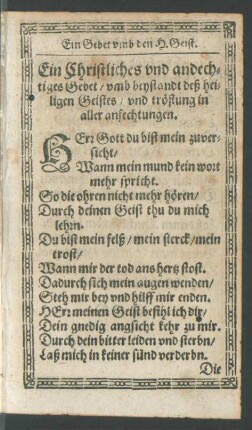 Ein Gebet vmb den H. Geist.
Ein Christliches vnd andech-
tiges Gebet / vmb beystandt deß hei-
ligen Geistes / vnd tröstung in
aller anfechtungen.
HErr Gott du bist mein zuver-
sicht /
Wann mein mund kein wort
mehr spricht.
So die ohren nicht mehr hören /
Durch deinen Geist thu du mich
lehrn.
Du bist mein felß / mein sterck / mein
trost /
Wann mir der tod ans hertz stost.
Dadurch sich mein augen wenden /
Steh mir bey vnd hilff mir enden.
HErr meinen Geist befühl ich dir /
Dein gnedig angsicht kehr zu mir.
Durch dein bitter leiden vnd sterbn /
Laß mich in keiner sünd verderbn.
Die